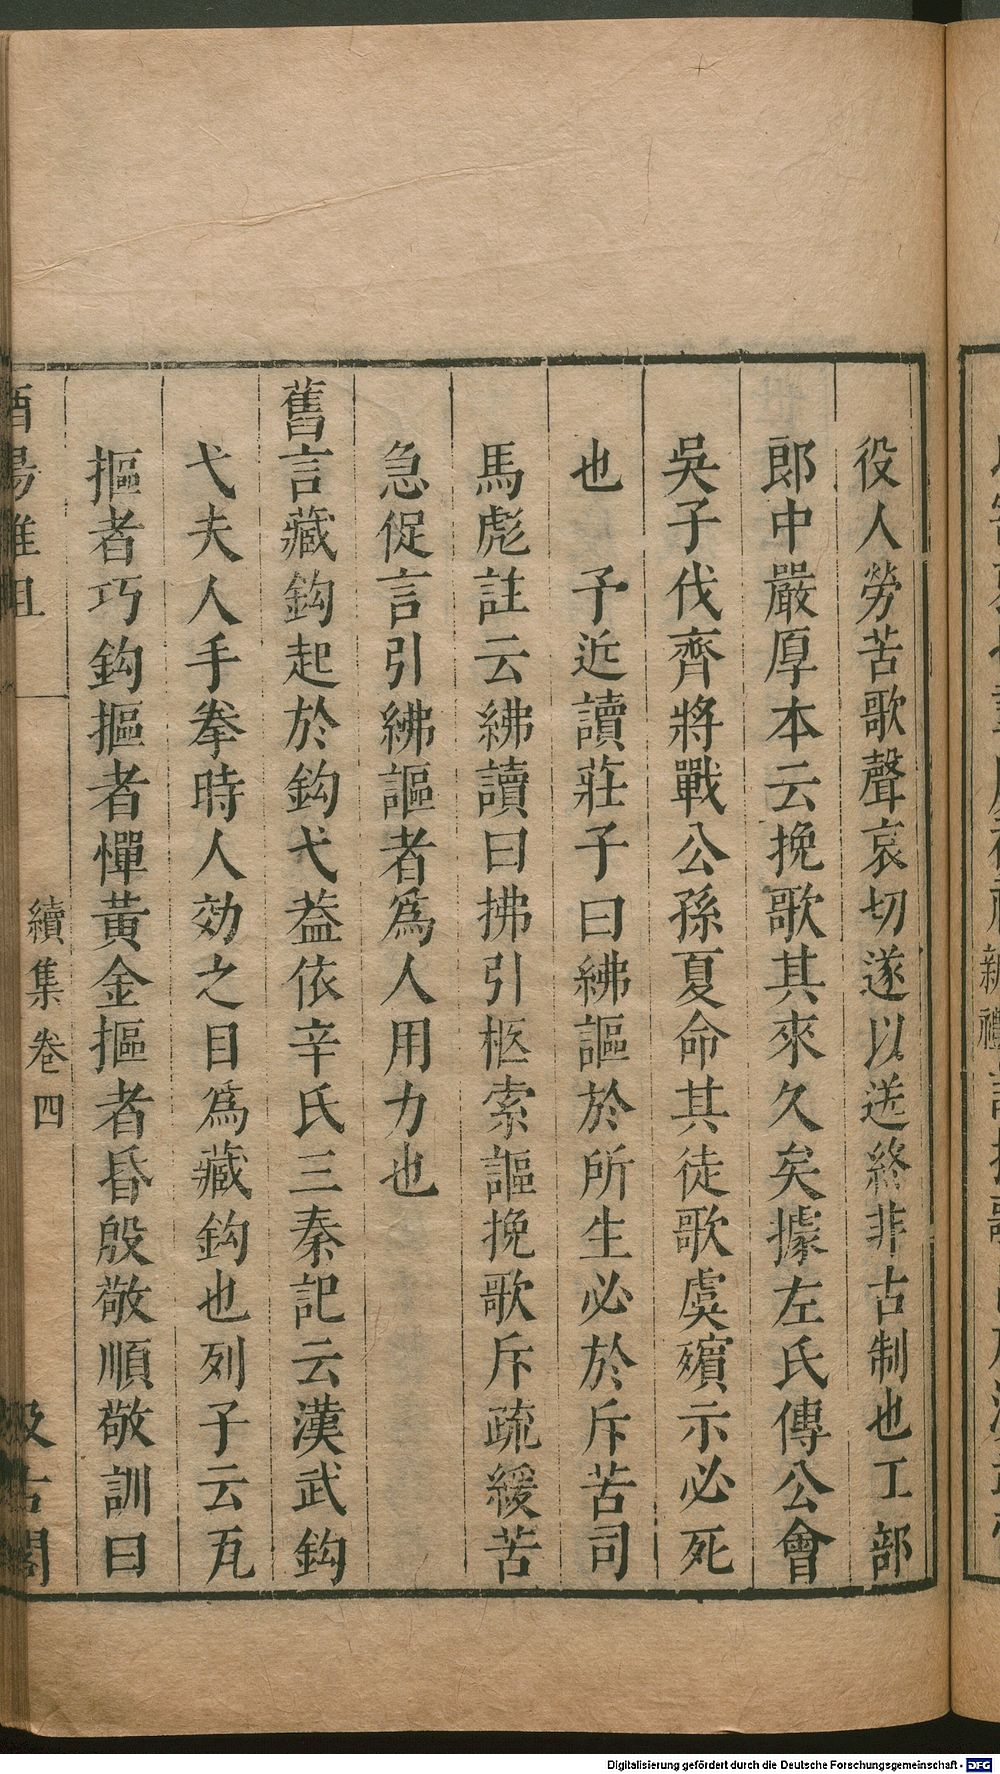 役人勞苦歌聲哀切遂以送終非古制也工部
郎中嚴厚本云挽歌其來久矣據左氏傳公會
吳子伐齊將戰公孫夏命其徒歌虞殯示必死
也　予近讀莊子曰紼謳於所生必於斥苦司
馬彪註云紼讀曰拂引柩索謳挽歌斥疏緩苦
急促言引紼謳者爲人用力也
舊言藏鈎起於鈎弋葢依辛氏三秦記云漢武鈎
弋夫人手拳時人効之目爲藏鈎也列子云瓦
摳者巧鈎摳者憚黃金摳者昏殷敬順敬訓曰
酉陽雜俎
續集卷四
汲古閣
Digitalisierung gefördert durch die Deutsche Forschungsgemeinschaft - DFG